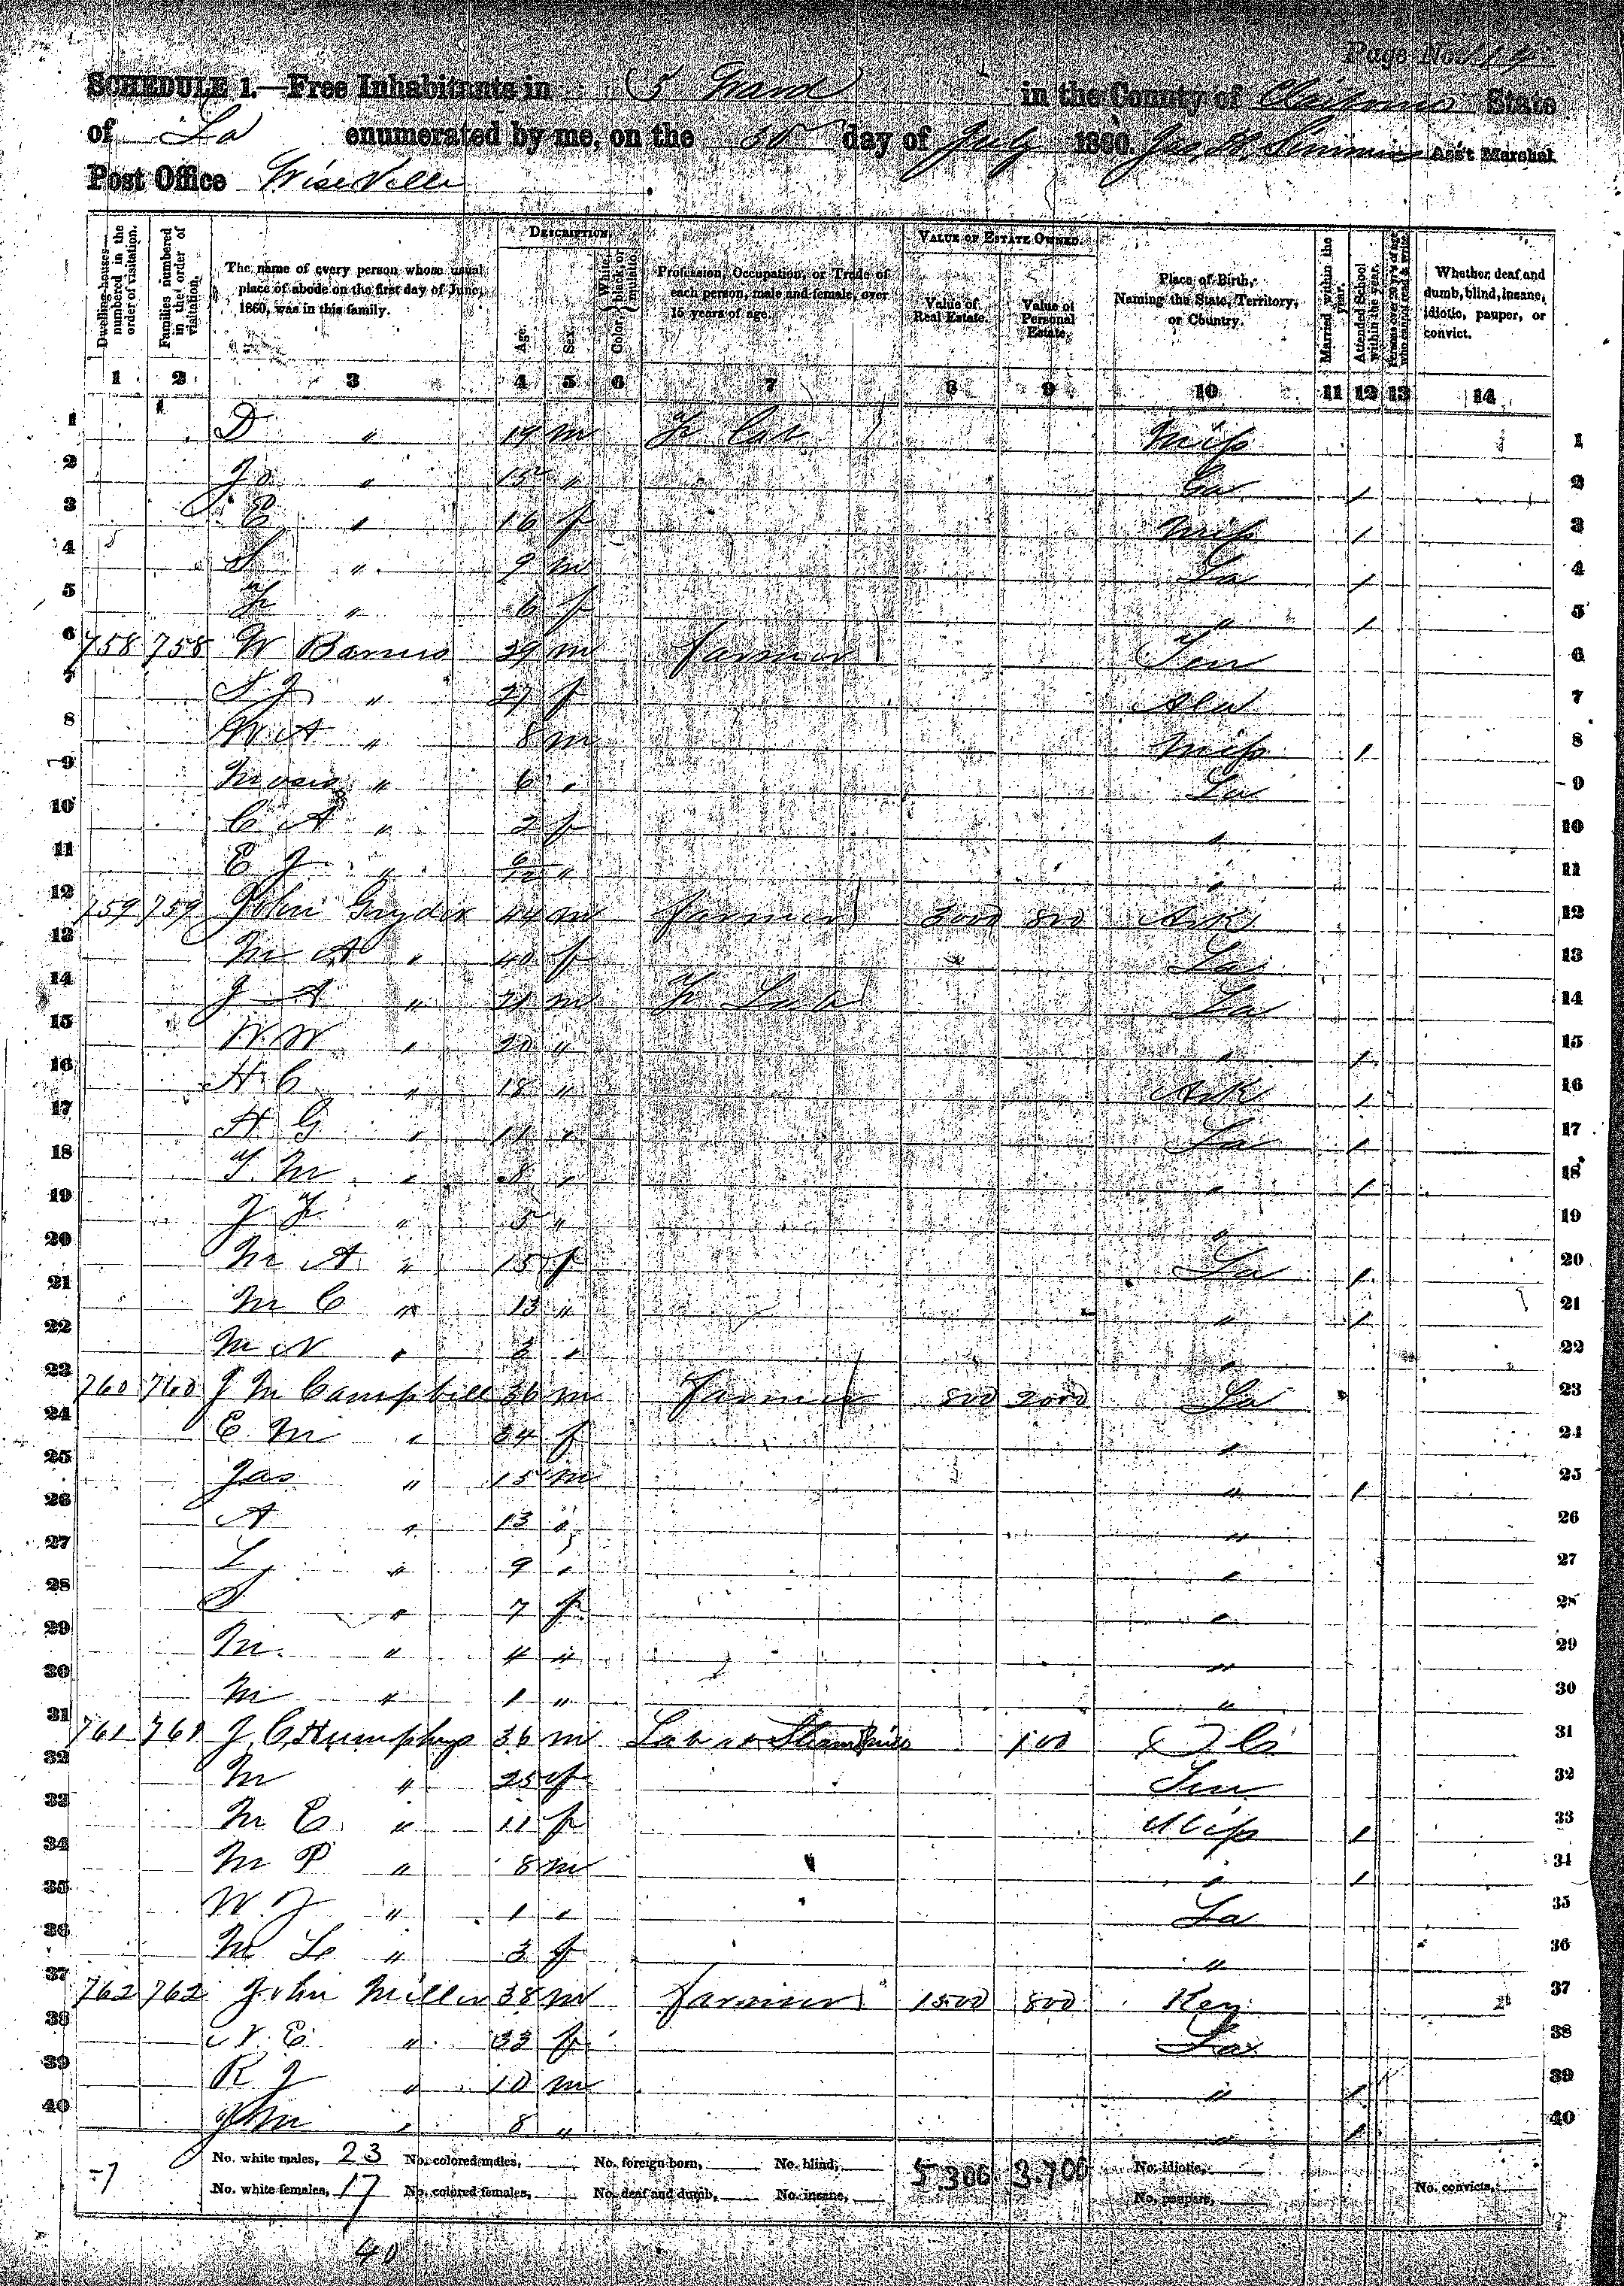 Page No.
SCHEDULE 1.—Free Inhabitants in 5 Ward in the County of Claiborne State
of La enumerated by me, on the day of July 1860. Jas. Simmons Ass't Marshal.
Post Office WiseVille
Dwelling-houses—numbered in the order of visitation.
Families numbered in the order of visitation.
The name of every person whose usual place of abode on the first day of June, 1860, was in this family.
DESCRIPTION.
Age.
Sex.
Color, White, black, or mulatto.
Profession, Occupation, or Trade of each person, male and female, over 15 years of age.
VALUE OF ESTATE OWNED.
Value of Real Estate.
Value of Personal Estate.
Place of Birth, Naming the State, Territory, or Country.
Married within the year.
Attended School within the year.
Persons over 20 y'rs of age who cannot read & write.
Whether deaf and dumb, blind, insane, idiotic, pauper, or convict.
1 2 3 4 5 6 7 8 9 10 11 12 13 14
1 D " 19 m Miss 1
2 " 15 " Ga / 2
3 E " 16 f Miss / 3
4 S " 9 m La / 4
5 " 6 f " / 5
6 758 758 W Barnes 39 m Farmer Ten 6
7 S J " 27 f Ala 7
8 W A " 8 m Miss / 8
9 " 6 " La 9
10 C A " 2 f " 10
11 E J " " " 11
12 759 759 John Gryder 44 m Farmer 3000 800 Ark 12
13 M A " 40 f La 13
14 J A " 21 m La 14
15 W W " 20 " " / 15
16 H C " 18 " Ark / 16
17 A G " 11 " La / 17
18 T M " 8 " " / 18
19 J F " 5 " " 19
20 M A " 15 f La / 20
21 M C " 13 " " / 21
22 M N " 3 " " 22
23 760 760 J M Campbell 36 m Farmer 800 2000 La 23
24 E M " 34 f " 24
25 Jas " 15 m " / 25
26 A " 13 " " 26
27 L " 9 " " 27
28 S " 7 f " 28
29 M. " 4 " " 29
30 M " 1 " " 30
31 761 761 J C Humphrys 36 m Lab Steam 100 31
32 M " 25 f Ten 32
33 M E " 11 f Miss / 33
34 M P " 8 m " / 34
35 W J " 1 " La 35
36 M L " 3 f " 36
37 762 762 John Miller 38 m Farmer 1500 800 Key 37
38 N E " 33 f La 38
39 R J " 10 m " / 39
40 John " 8 " " / 40
No. white males, 23 No. colored males, No. foreign born, No. blind, 5 300 3.700 No. idiotic,
No. white females, 17 No. colored females, No. deaf and dumb, No. insane, No. paupers, No. convicts,
40